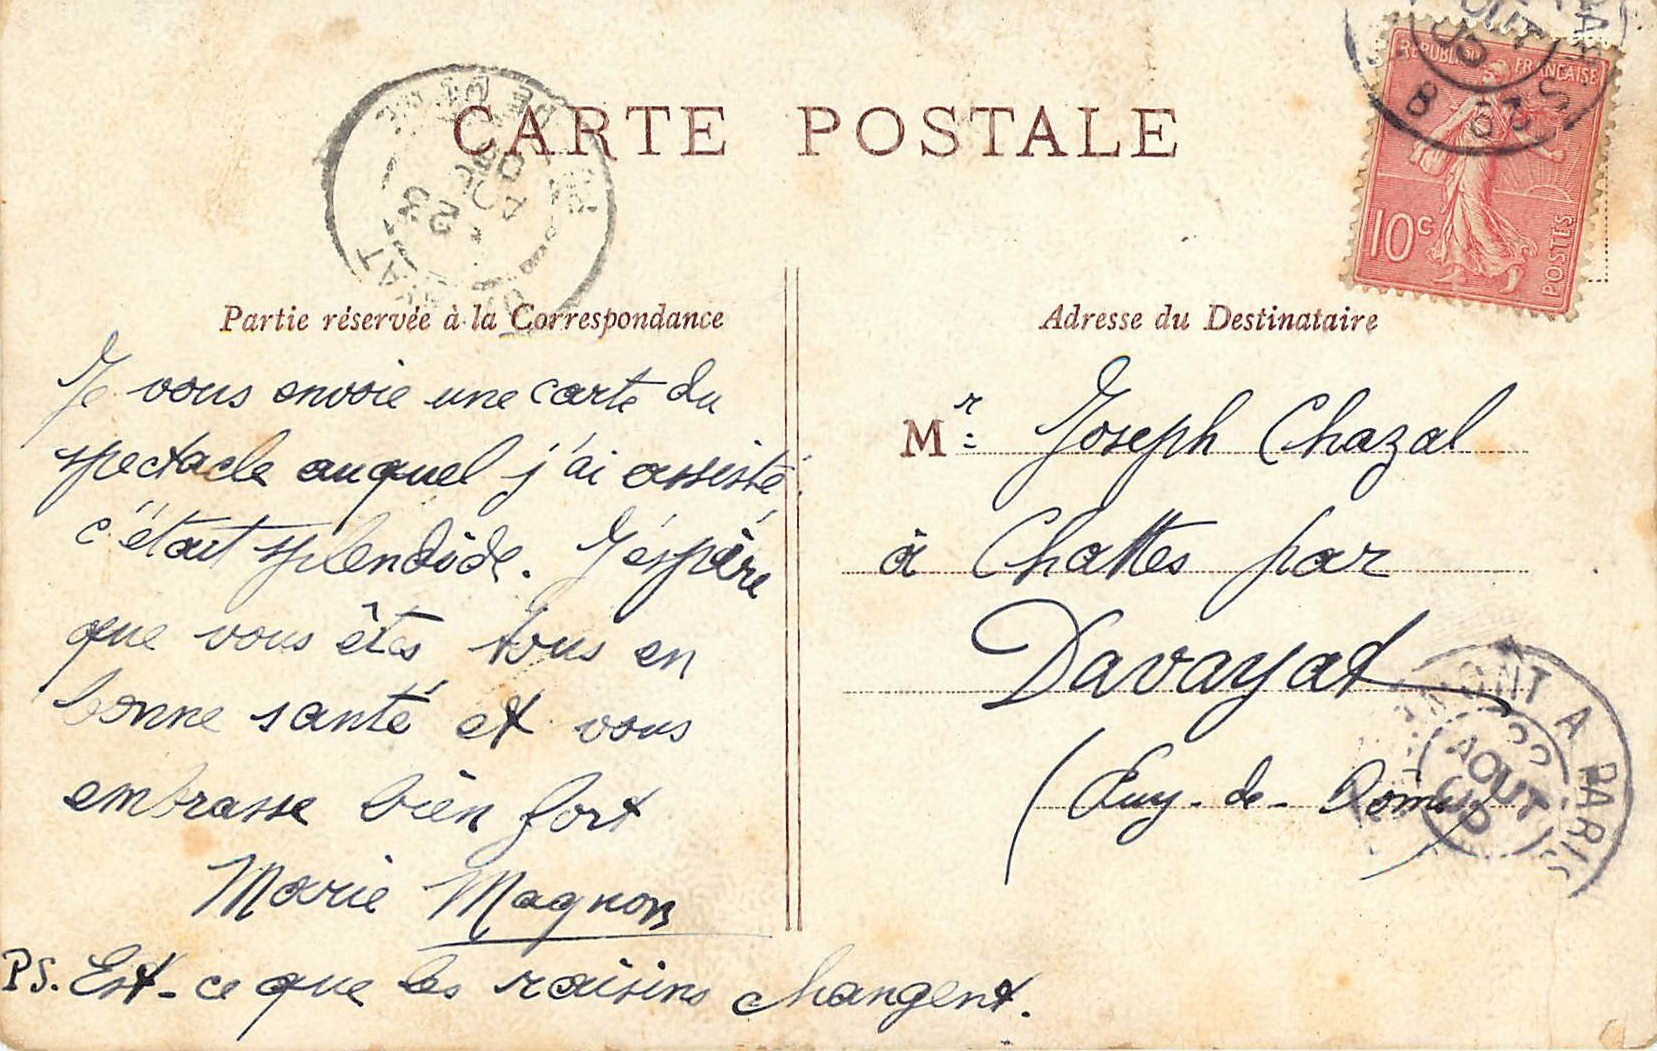 CARTE POSTALE
RÉPUBLIQUE FRANÇAISE
10c
POSTES
Partie réservée à la Correspondance
Je vous envoie une carte du
spectacle auquel j'ai assisté
c'était splendide. J'éspère
que vous êtes tous en
bonne santé et vous
embrasse bien fort
Marie Magnon
PS. Est-ce que les raisins changent.
Adresse du Destinataire
Mr: Joseph Chazal
à Chattes par
Davayat
(Puy-de-Dome)
MONT A PARIS
AOUT
23